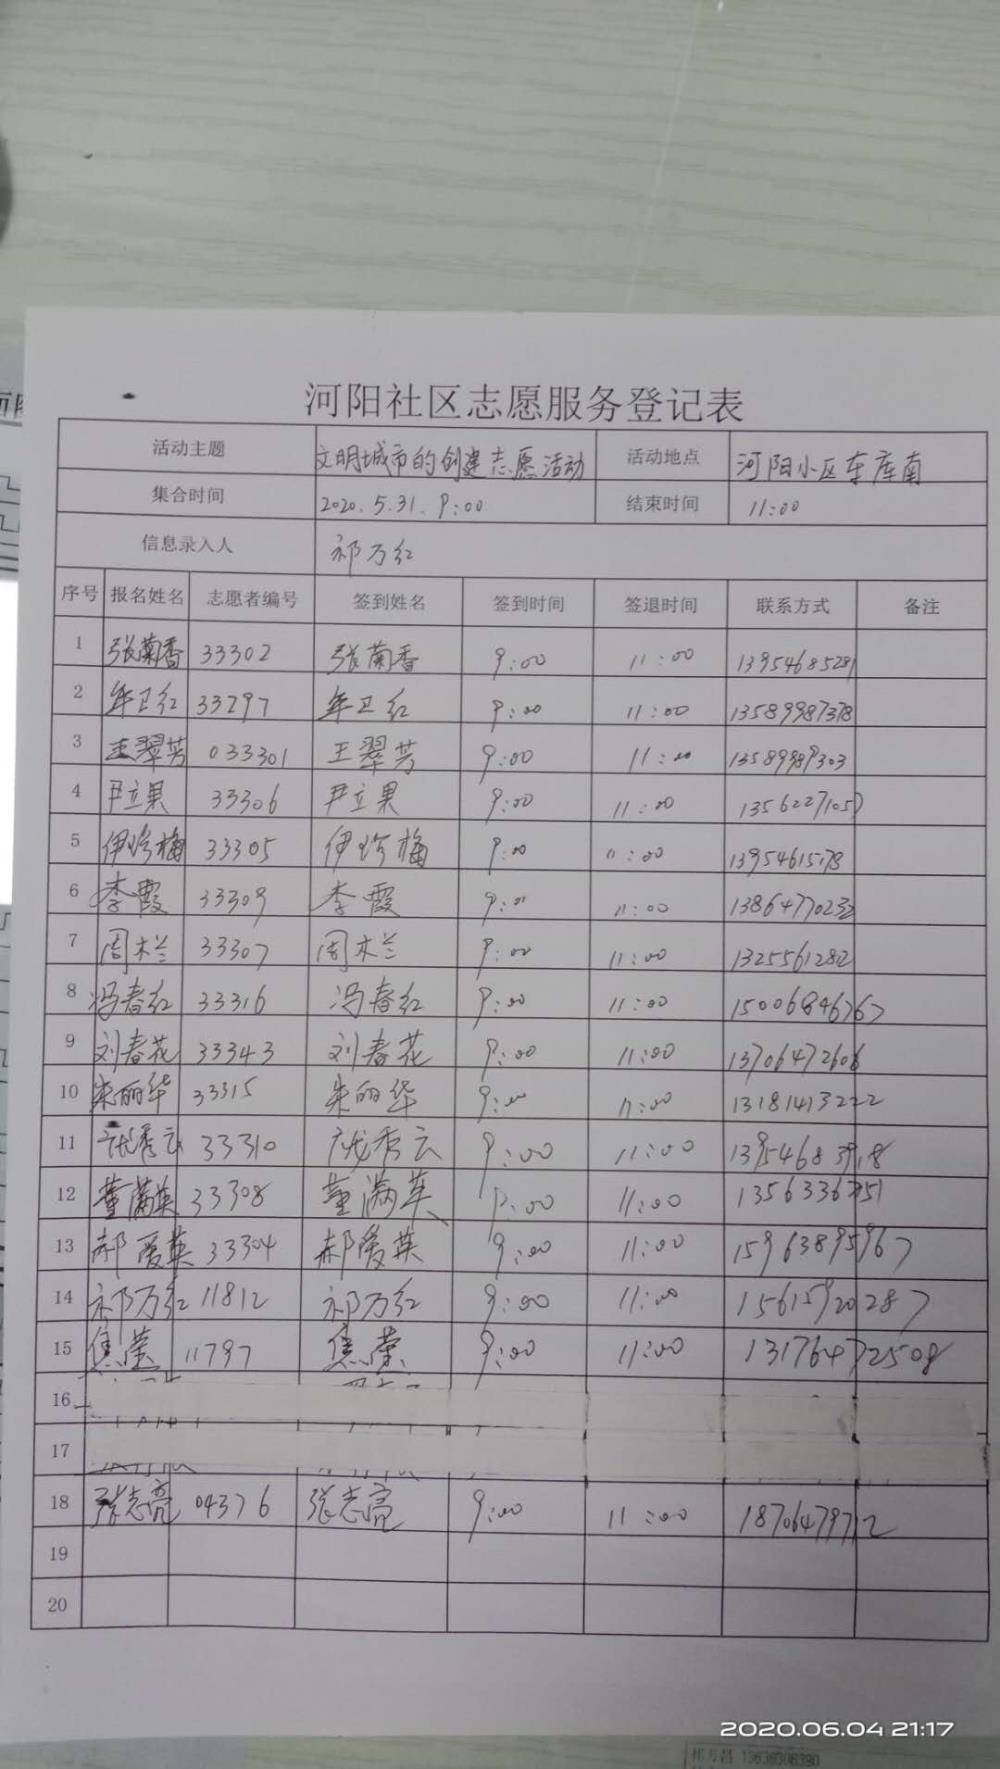 河阳社区志愿服务登记表
活动主题 文明城市的创建志愿活动 活动地点 河阳小区车库南
集合时间 2020.5.31. 9:00 结束时间 11:00
信息录入人 祁万红
序号 报名姓名 志愿者编号 签到姓名 签到时间 签退时间 联系方式 备注
1 张菊香 33302 张菊香 9:00 11:00 13954685281
2 牟卫红 33297 牟卫红 9:00 11:00 13589987378
3 王翠芳 033301 王翠芳 9:00 11:00 13589989303
4 尹立果 33306 尹立果 9:00 11:00 13562271057
5 伊珍梅 33305 伊珍梅 9:00 11:00
6 李霞 33309 李霞 9:00 11:00 13864770232
7 周木兰 33307 周木兰 9:00 11:00 1325561282
8 冯春红 33316 冯春红 9:00 11:00 15006846767
9 刘春花 33343 刘春花 9:00 11:00 13706472606
10 朱丽华 33315 朱丽华 9:00 11:00 13181413222
11 33310 庞秀云 9:00 11:00
12 董满英 33308 董满英 9:00 11:00
13 郝爱英 33304 郝爱英 9:00 11:00 15963895967
14 祁万红 11812 祁万红 9:00 11:00 15615920287
15 焦荣 11797 焦荣 9:00 11:00 13176472508
16
17
18 张志亮 04376 张志亮 9:00 11:00 18706479712
19
20
2020.06.04 21:17